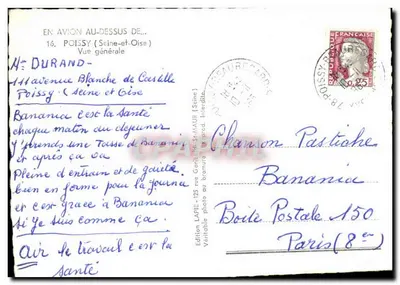 EN AVION AU-DESSUS DE...
16. POISSY (Seine-et-Oise)
Vue générale
Mr DURAND-
111 avenue Blanche de Castille
Poissy - Seine et Oise
Banania c'est la Santé
chaque matin au dejeuner
J'prends une Tasse de Banania
et après ça va
Pleine d'entrain et de gaieté
bien en forme pour la journée
et c'est grace à Banania
Si Je suis comme ça.
Air le travail c'est la
santé
Edition LAPIE
Véritable photo au bromure
Interdite
REPUBLIQUE FRANÇAISE
0,25
POISSY
78
Chanson Pastiche
Banania
Boite Postale 150
Paris (8er)